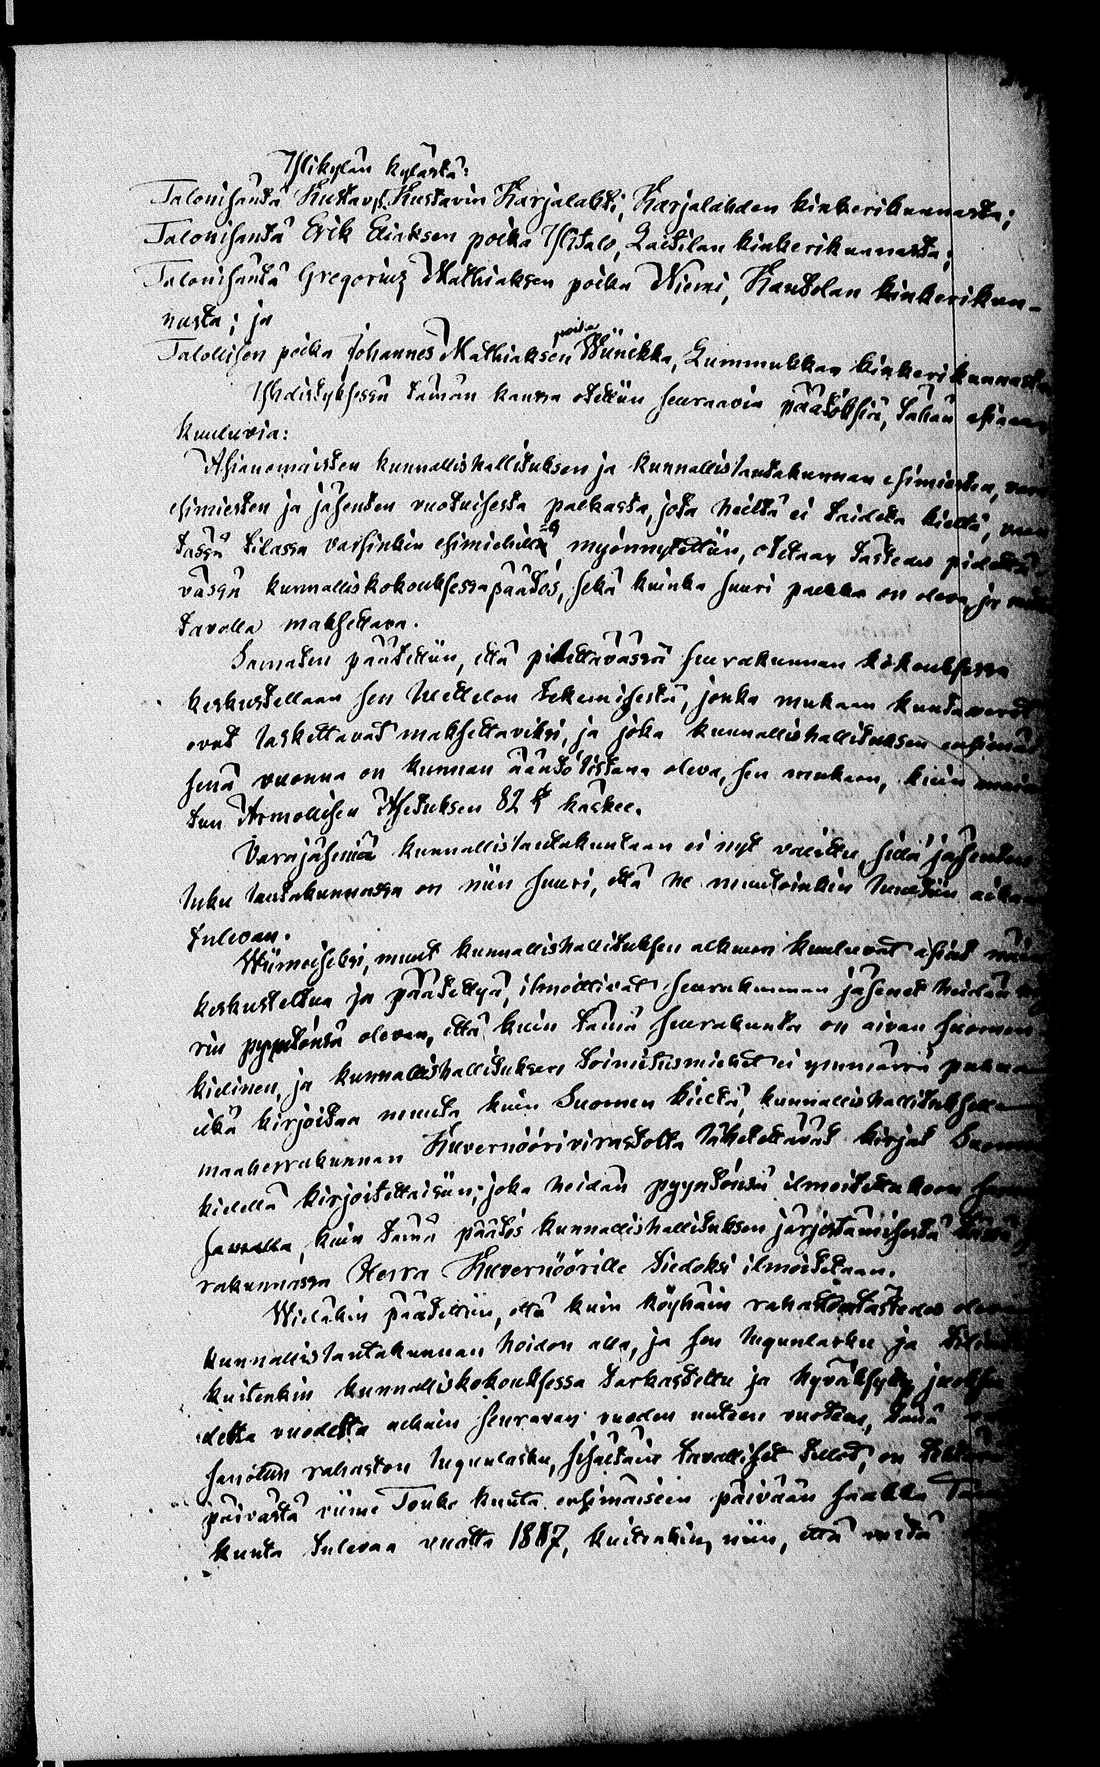 Ylikylän kylästä:
Talonisäntä Kustav Kustavin Karjalahti, Karjalahden kinkerikunnasta;
Talonisäntä Erik Eliaksen poika Ylitalo, Laitilan kinkerikunnasta;
Talonisäntä Gregorius Mathiaksen poika Niemi, Kautolan kinkerikun-
nasta; ja
Talollisen poika Johannes Mathiaksen poika Wiinikka, Lummukkan kinkerikunnasta
Yhdistyksessä tämän kanssa otettiin seuraavia päätöksiä, tähän asiaan
kuuluvia:
Asianomaisten kunnallishallituksen ja kunnallislautakunnan esimiesten, vara
esimiesten ja jäsenten vuotuisesta palkasta, jota heiltä ei taideta kieltä, vaan
tässä tilassa varsinkin esimiehille myönnytettiin, otetaan tästedes pidettä-
vässä kunnalliskokouksessa päätös, sekä kuinka suuri palkka on oleva, ja
tavalla maksettava.
Samaten päätettiin, että pidettävässä seurakunnan kokouksessa
keskustellaan sen luettelon tekemisestä, jonka mukaan kuntaverot
ovat laskettavat maksettaviksi, ja joka kunnallishallituksen ensimäi
senä vuonna on kunnan ääntölistana oleva, sen mukaan, kuin
tun Armollisen Asetuksen 82 § käskee.
Varajäseniä kunnallislautakuntaan ei nyt valittu, sillä jäsenten
luku lautakunnassa on niin suuri, että he muutoinkin luultiin aikaan
tulevan.
Wiimeiseksi, muut kunnallishallituksen alkuun kuuluvat asiat
keskusteltua ja päätettyä, ilmoittivat seurakunnan jäsenet heidän
rin pyyntönsä olevan, että kuin tämä seurakunta on aivan suomen
kielinen, ja kunnallishallituksen toimitusmiehet ei ymmärrä puhua
eikä kirjoittaa muuta kuin Suomen kieltä, kunnallishallitukselle
maaherrakunnan Kuvernöörivirastolta lähetettävät kirjat Suomen
kielellä kirjoitettaisiin; joka heidän pyyntönsä ilmoitettakoon
havalla, kuin tämä päätös kunnallishallituksen järjestämisestä tässä
rakunnassa Herra Kuvernöörille tiedoksi ilmoitetaan.
Wieläkin päätettiin, että kuin köyhäin rahasto tästedes
kunnallislautakunnan hoidon alla, ja sen luvunlasku ja
kuitenkin kunnalliskokouksessa tarkasteltu ja hyväksytty
detta vuodesta alkain seuraavan vuoden uuteen vuoteen, tämä
sanotun rahaston luvunlasku, sisältävä tavalliset tulot, on
päivästä viime Touko kuuta ensimäiseen päivään saakka
kuuta tulevaa vuotta 1867, kuitenkin, niin, että mitä